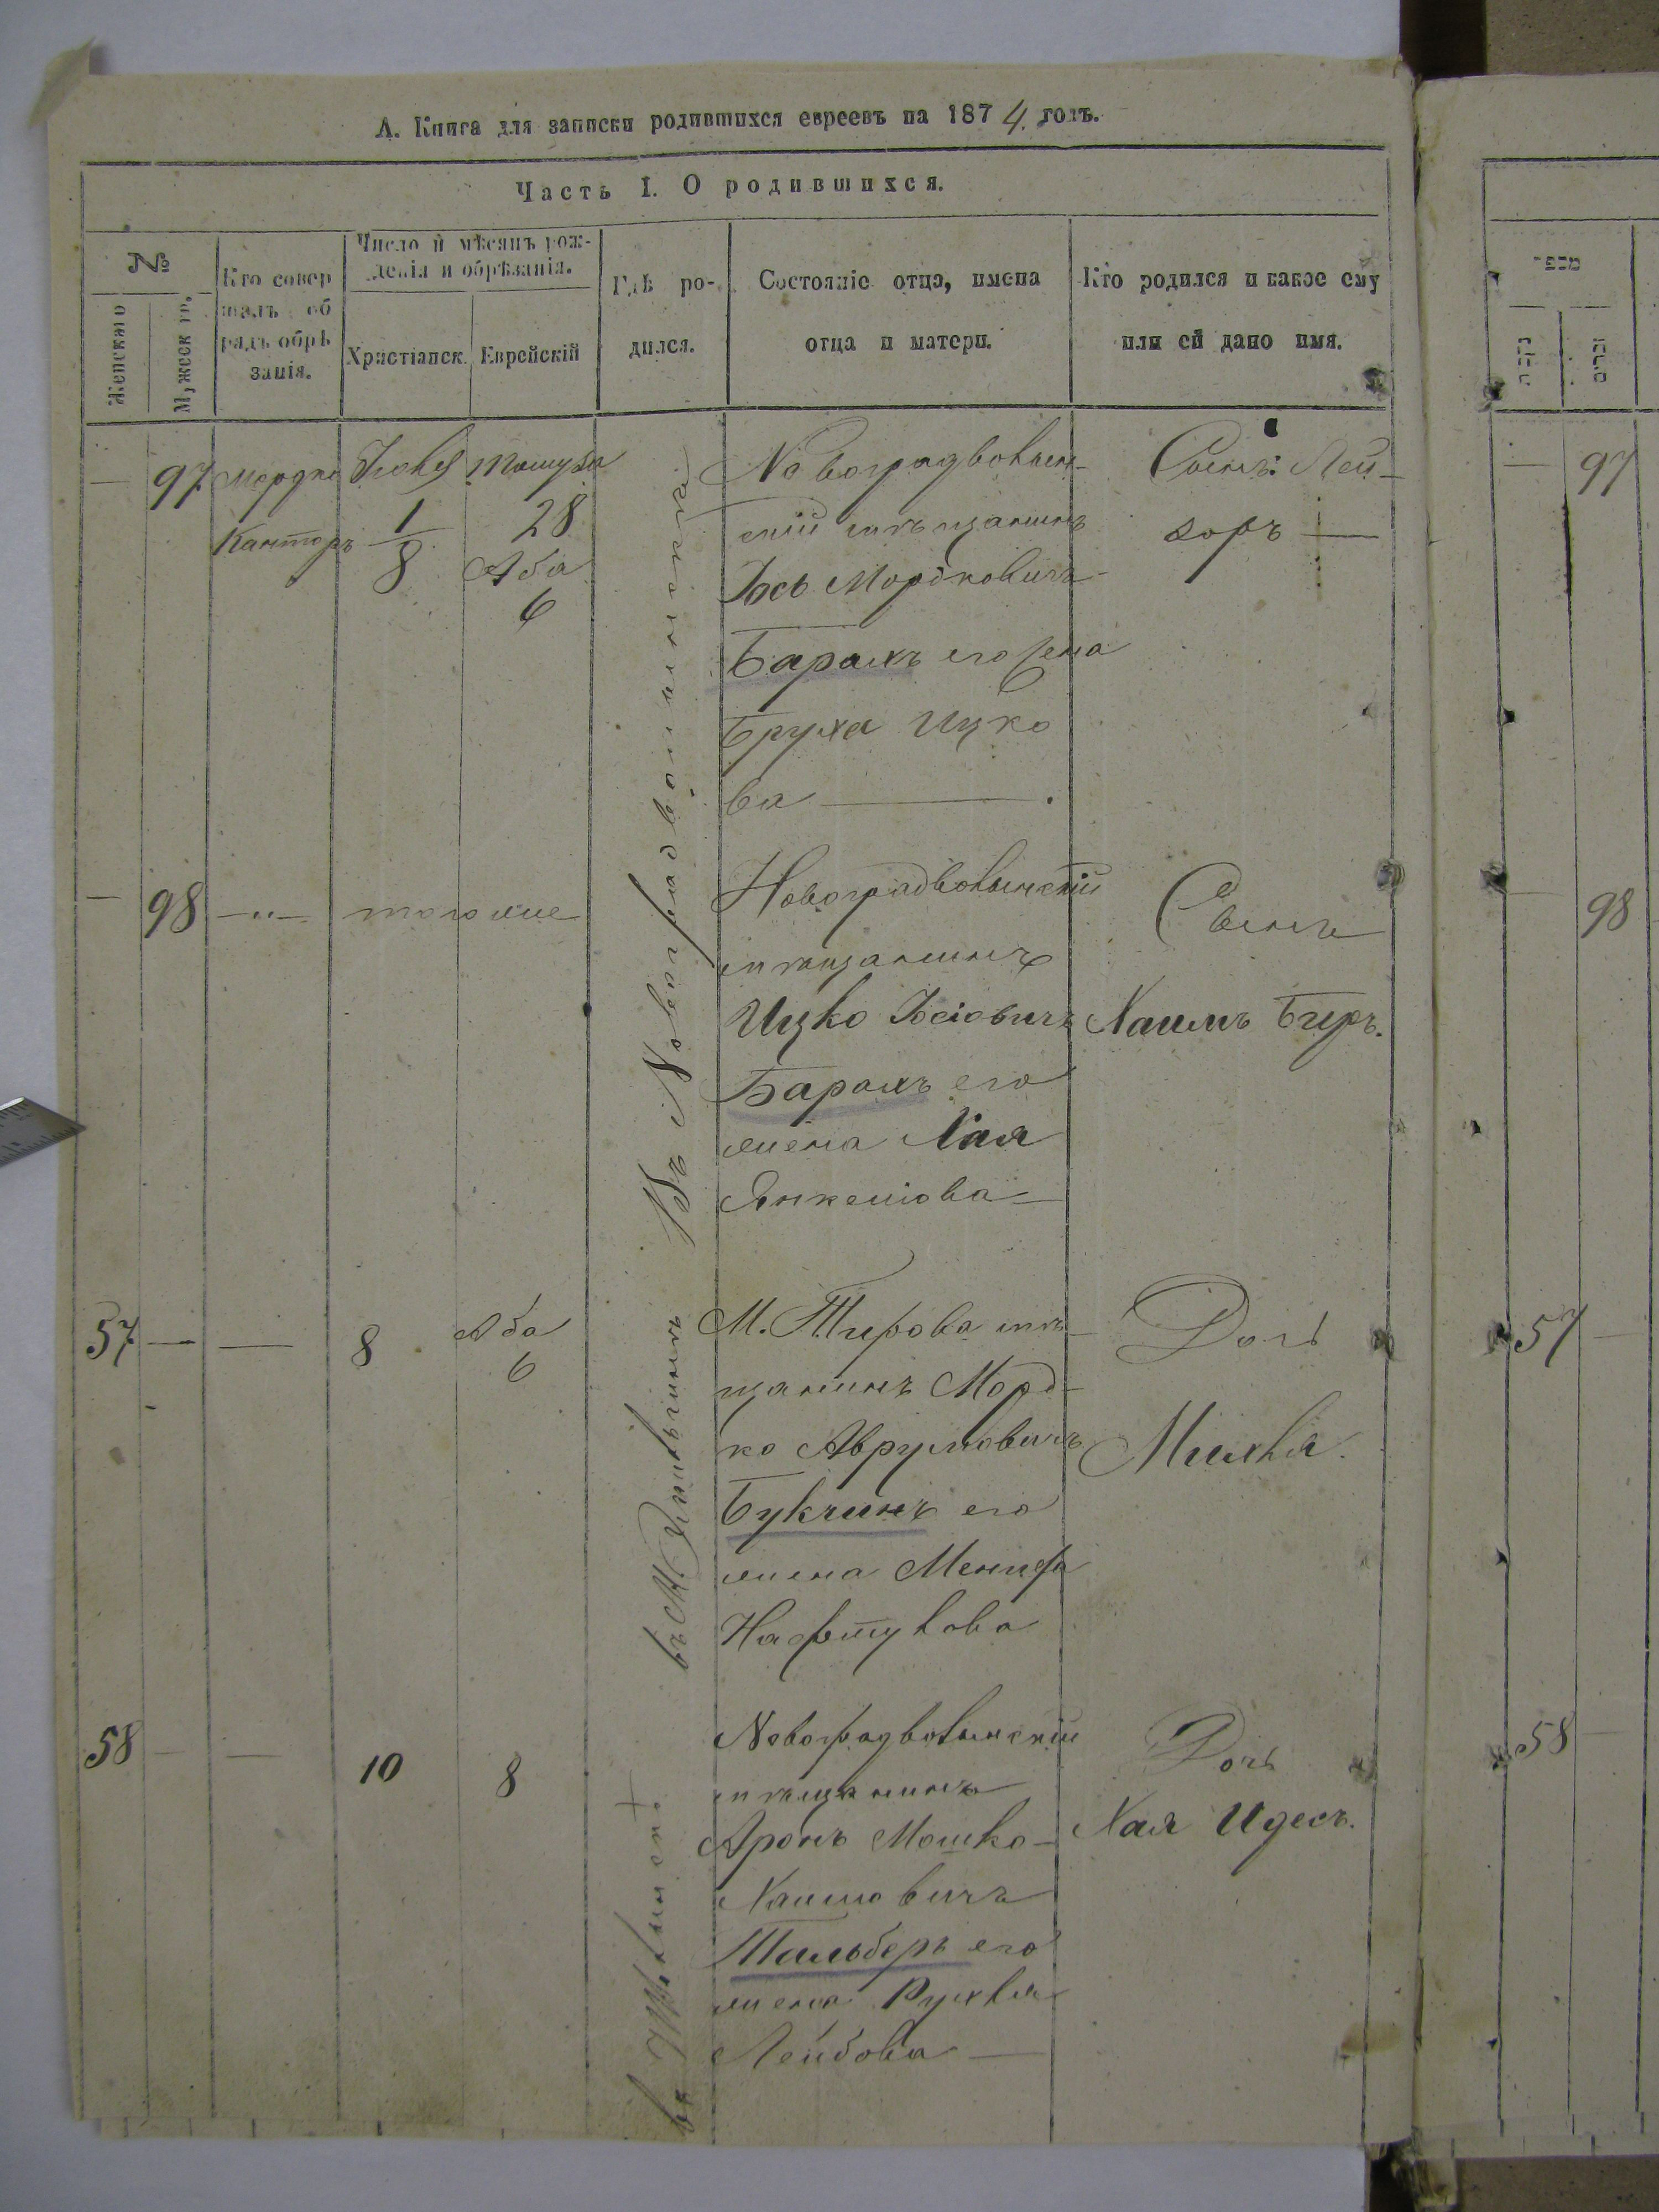 А. Книга для записки родившихся евреевъ на 1874. годъ.
Часть I. О родившихся.
№
Женскаго
Мужеск го.
Кто совер
шалъ об
рядъ обрѣ
занія.
Число и мѣсяцъ рож-
денія и обрѣзанія.
Христіанск.
Еврейскій
Гдѣ ро-
дился.
Состояніе отца, имена
отца и матери.
Кто родился и какое ему
или ей дано имя.
— 97 Мордко Кантор Іюля 1/8 Тамуза 28 Аба 6
Новоградволын-
скій мѣщанинъ
Іось Мордковичъ
Барахъ его жена
Бруха Ицко
ва —
Сынъ: Лей-
зоръ —
— 98 —"— тогоже
Новоградволынскій
мѣщанинъ
Ицко Іосіовичъ
Барахъ его
жена Хая
Янкеліова —
Сынъ
Хаимъ Беръ.
Въ Новоградволынскѣ
57 — — 8 Аба 6
въ М.
М. мѣ-
щанинъ Морд-
ко Аврумовичъ
Букчинъ его
жена
Нафтулова
Дочь
Михля.
58 — — 10 8
Новоградволынскій
мѣщанинъ
Аронъ Мошко-
Хаимовичъ
Тальберъ его
жена Рухля
Лейбова —
Дочь
Хая Идесъ.
מספר
נקבות
זכרים
— 97
— 98
57 —
58 —